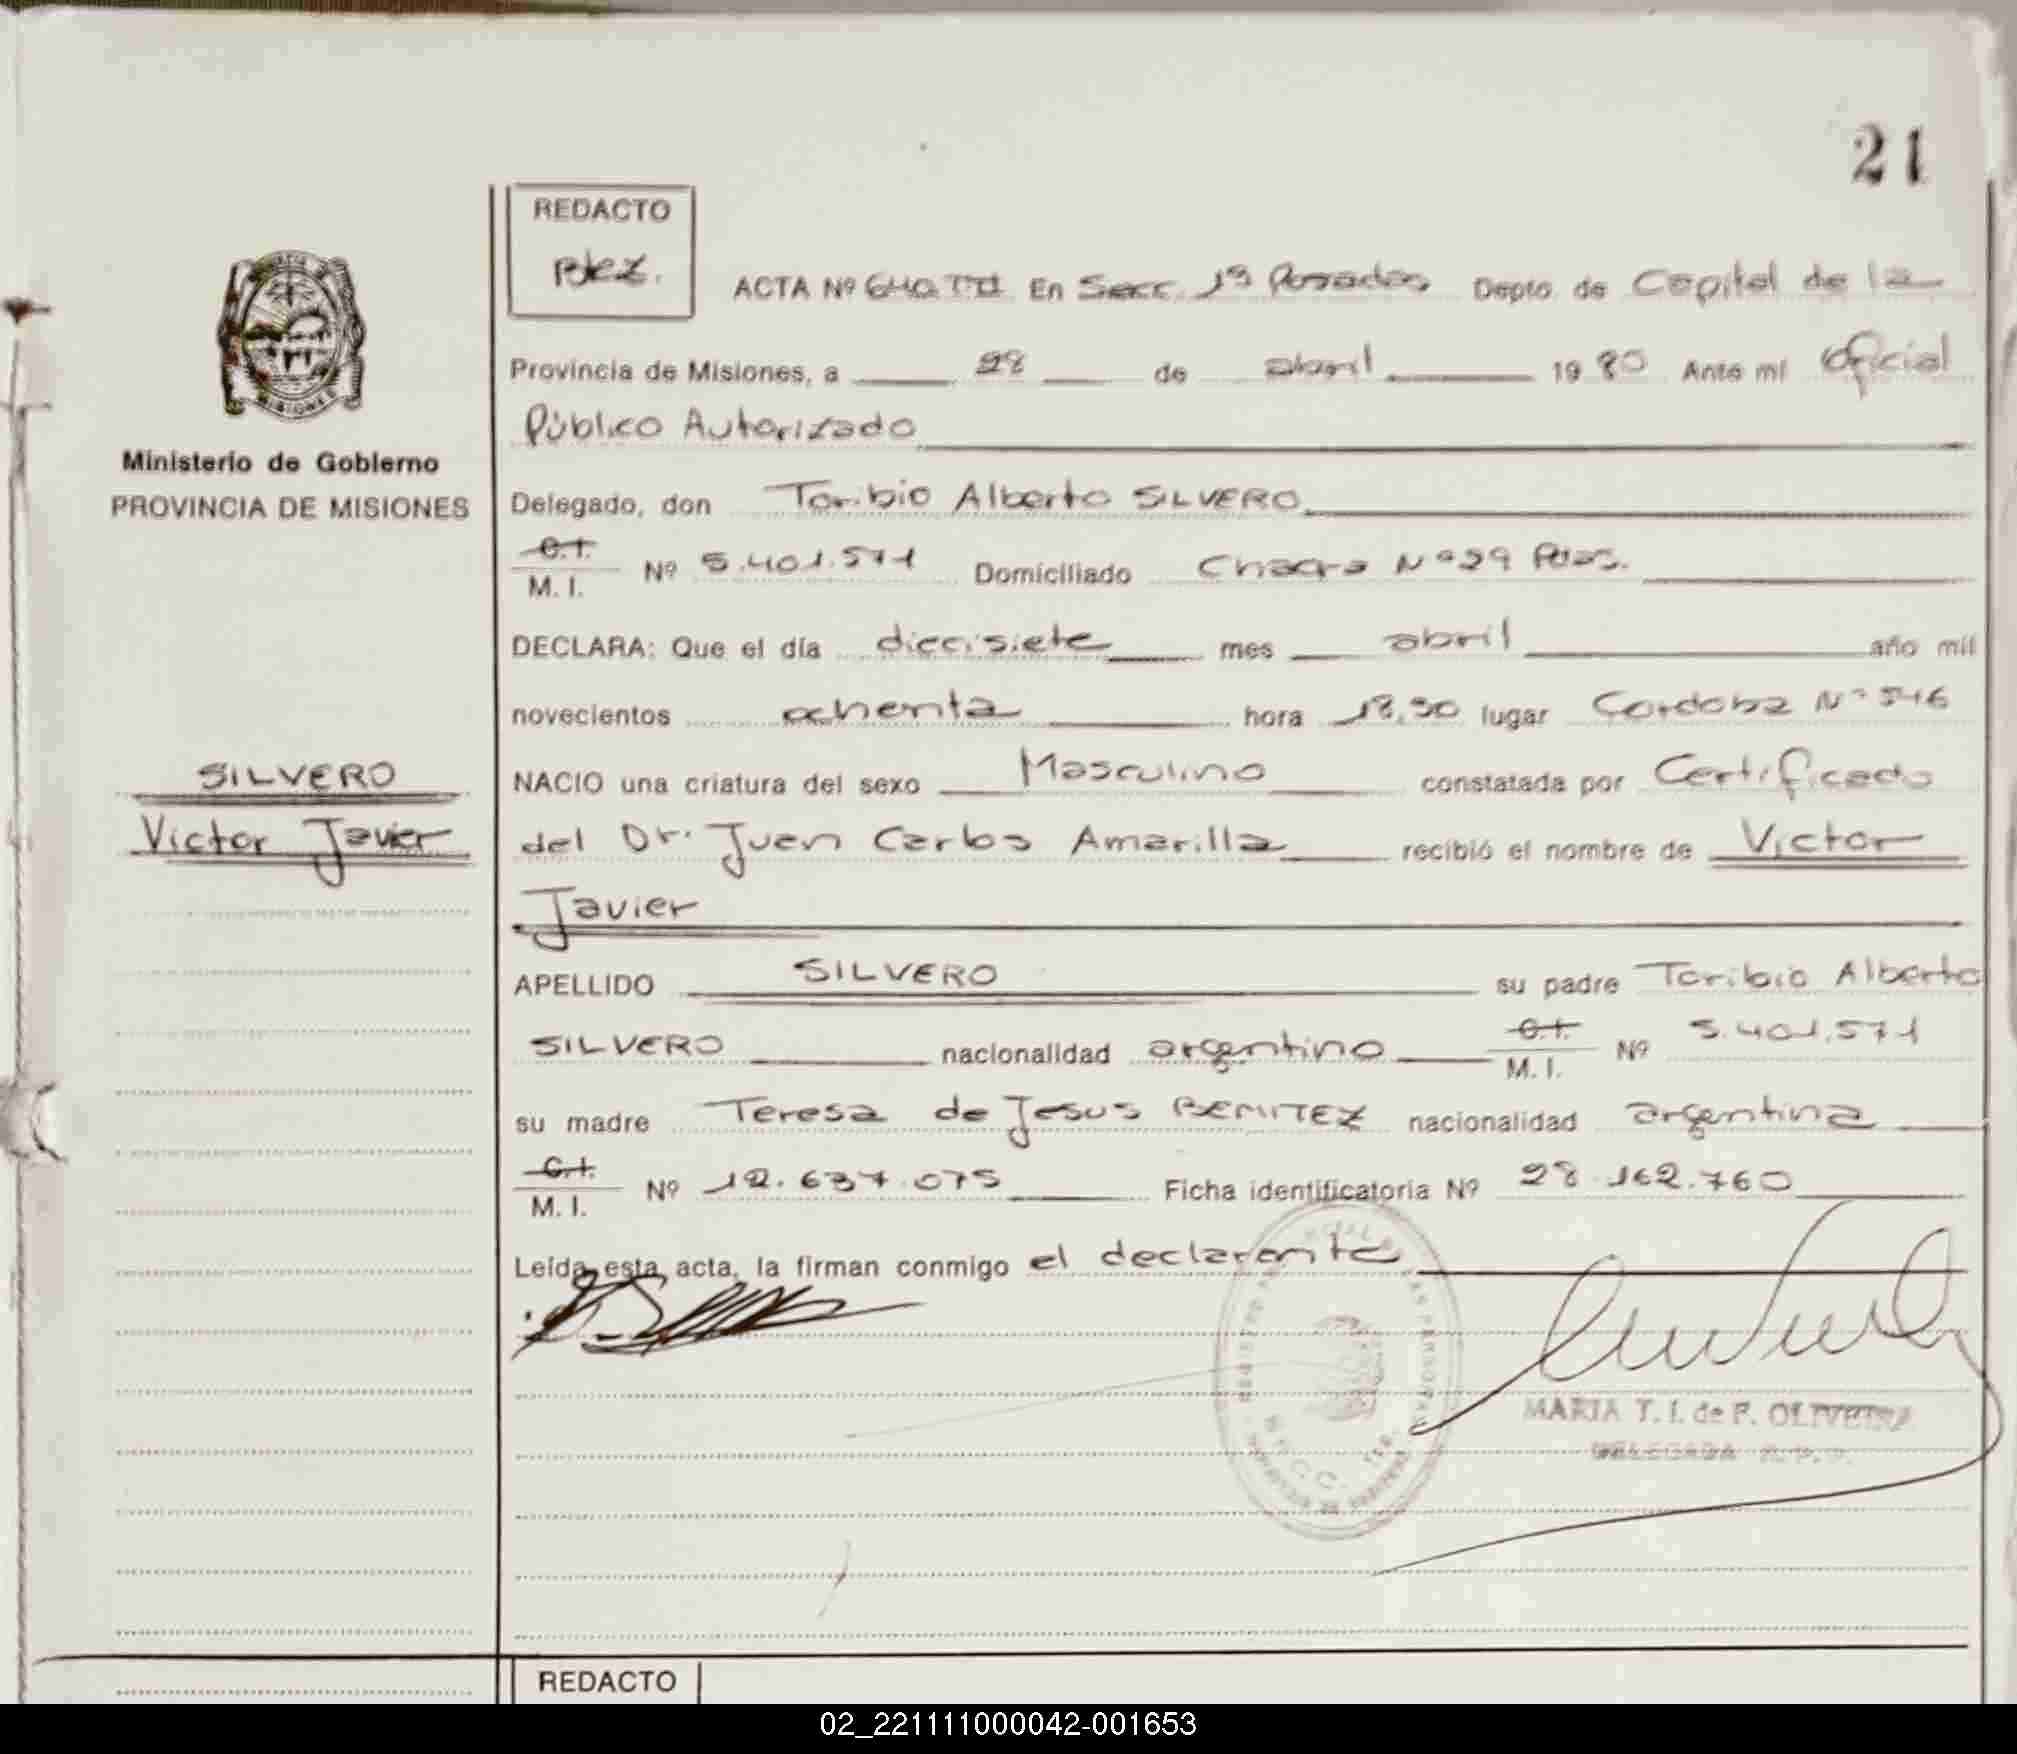 21
REDACTO
Blez.
ACTA Nº 640 TII En Secc. 1ª Posadas Depto. de Capital de la
Provincia de Misiones, a 28 de abril 1980 Ante mí Oficial
Público Autorizado
Ministerio de Gobierno
PROVINCIA DE MISIONES
Delegado, don Toribio Alberto SILVERO
C.I.
M. I. Nº 5.401.571 Domiciliado Chacra Nº 29 Pdas.
DECLARA: Que el día diecisiete mes abril año mil
novecientos ochenta hora 18,30 lugar Cordoba Nº 546
SILVERO
Victor Javier
NACIO una criatura del sexo Masculino constatada por Certificado
del Dr. Juan Carlos Amarilla recibió el nombre de Victor
Javier
APELLIDO SILVERO su padre Toribio Alberto
SILVERO nacionalidad argentino C.I. M. I. Nº 5.401.571
su madre Teresa de Jesus BENITEZ nacionalidad argentina
C.I.
M. I. Nº 12.637.075 Ficha identificatoria Nº 28.162.760
Leída esta acta, la firman conmigo el declarante
MARIA T. I. de F. OLIVEIRA
DELEGADA R.P.P.
REDACTO
02_221111000042-001653